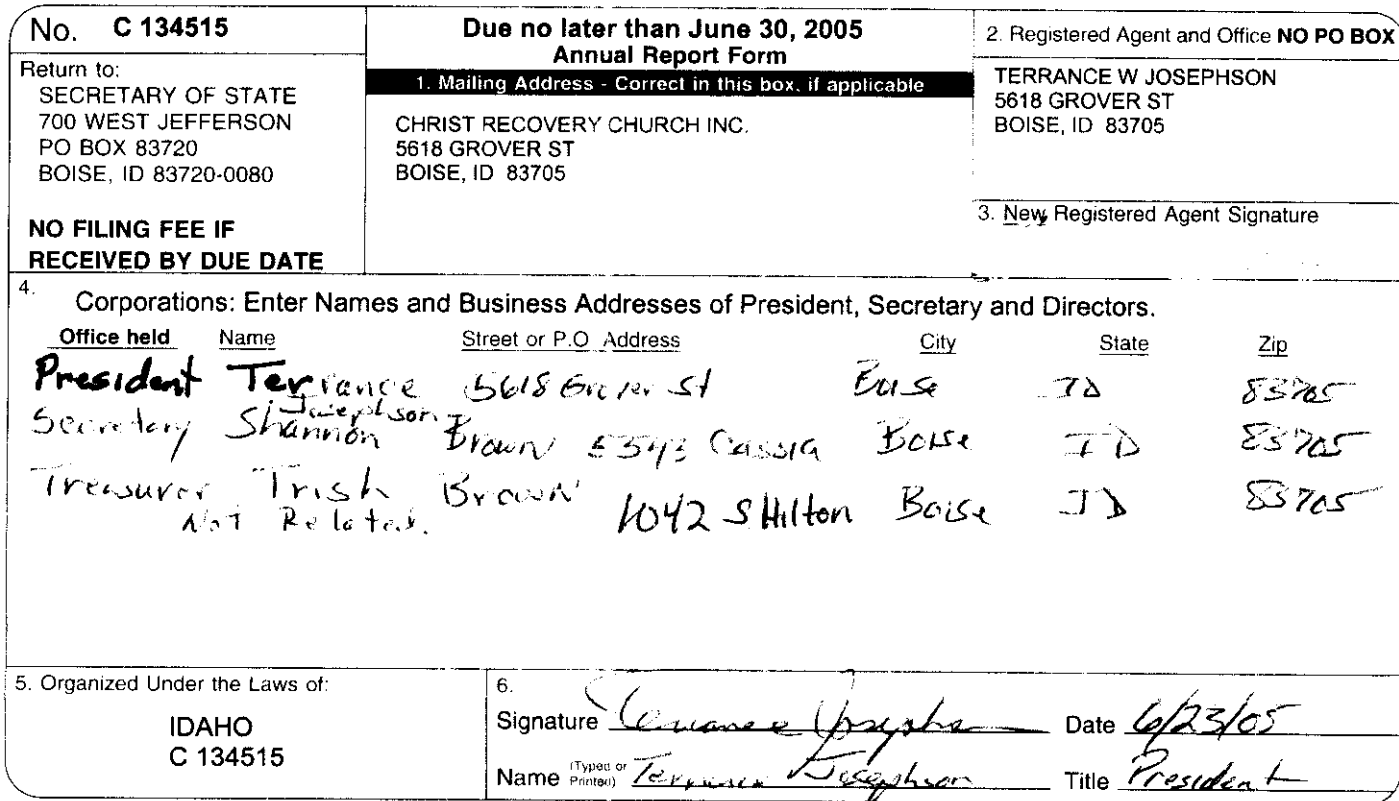 No. C 134515
Return to:
SECRETARY OF STATE
700 WEST JEFFERSON
PO BOX 83720
BOISE, ID 83720-0080
NO FILING FEE IF
RECEIVED BY DUE DATE
Due no later than June 30, 2005
Annual Report Form
1. Mailing Address - Correct in this box, if applicable
CHRIST RECOVERY CHURCH INC.
5618 GROVER ST
BOISE, ID 83705
2. Registered Agent and Office NO PO BOX
TERRANCE W JOSEPHSON
5618 GROVER ST
BOISE, ID 83705
3. New Registered Agent Signature
4. Corporations: Enter Names and Business Addresses of President, Secretary and Directors.
Office held Name Street or P.O Address City State Zip
President Terrance 5618 Grover St Boise ID 83705
Josephson
Secretary Shannon Brown 5343 Cassia Boise ID 83705
Treasurer Trish Brown 1042 S Hilton Boise ID 83705
Not Related.
5. Organized Under the Laws of:
IDAHO
C 134515
6.
Signature Terrance Josephson Date 6/23/05
Name (Typed or Printed) Terrance Josephson Title President